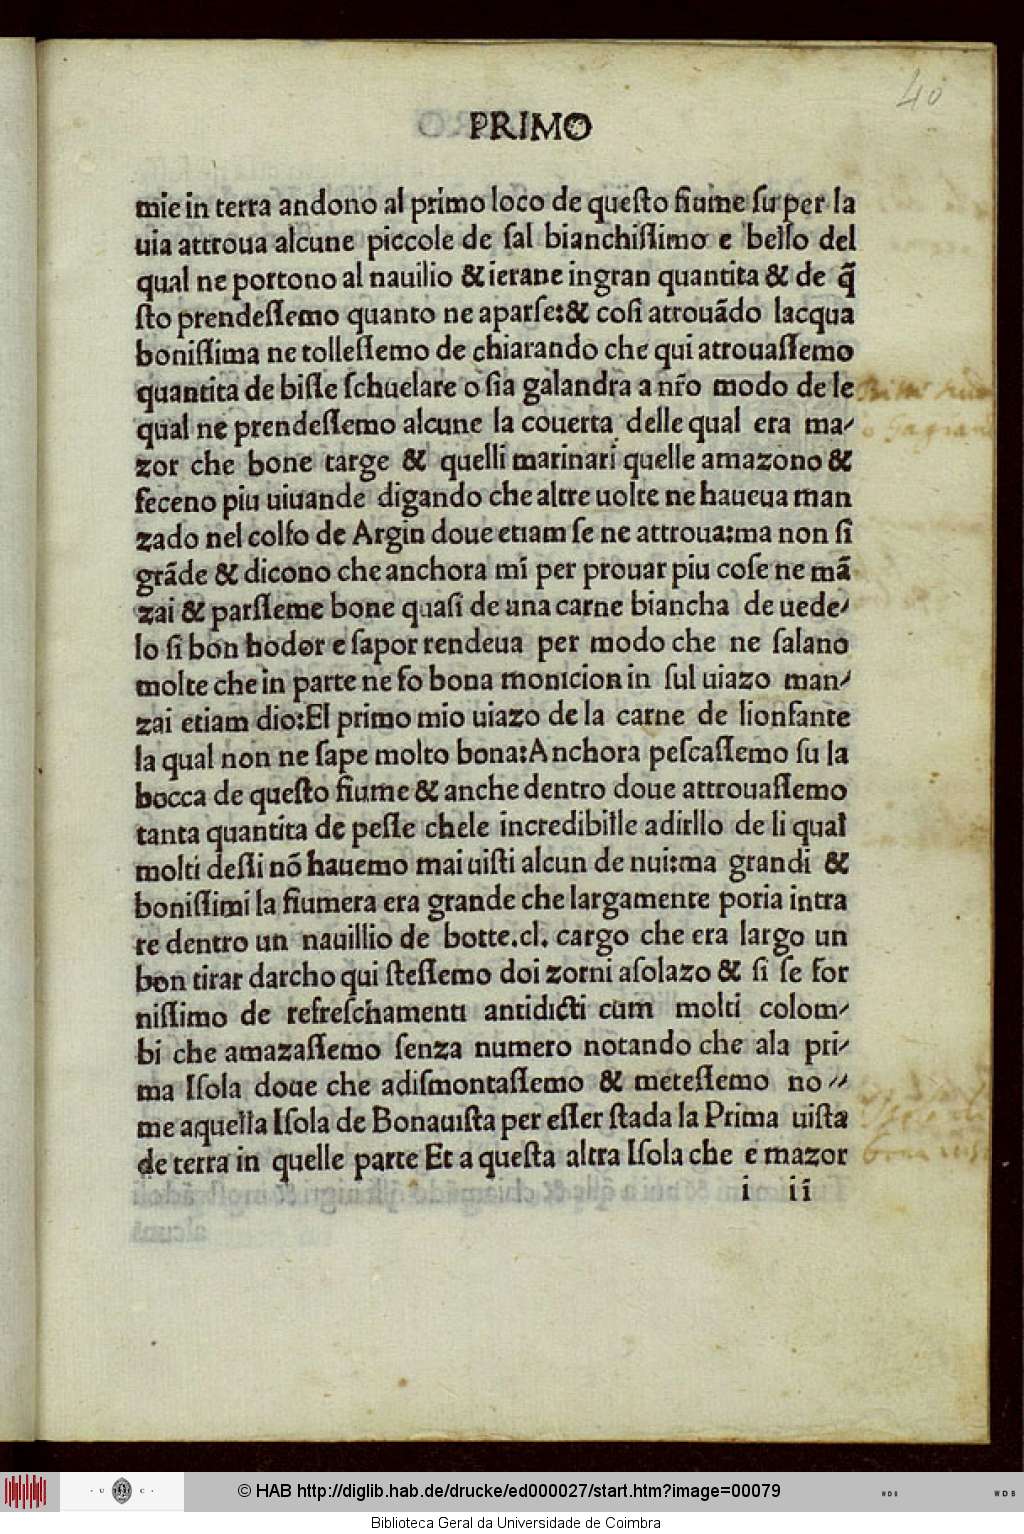 40
PRIMO
mie in terra andono al primo loco de queſto fiume ſu per la
uia attroua alcune piccole de ſal bianchiſſimo e bello del
qual ne portono al nauilio & ierane in gran quantita & de q̃
ſto prendeſſemo quanto ne aparſe:& coſi atrouãdo lacqua
boniſſima ne tolleſſemo de chiarando che qui atrouaſſemo
quantita de biſſe ſchuelare o ſia galandra a nr̃o modo de le
qual ne prendeſſemo alcune la couerta delle qual era ma⸗
zor che bone targe & quelli marinari quelle amazono &
feceno piu uiuande digando che altre uolte ne haueua man
zado nel colfo de Argin doue etiam ſe ne attroua:ma non ſi
grãde & dicono che anchora mi per prouar piu coſe ne mã
zai & parſſeme bone quaſi de una carne biancha de uede⸗
lo ſi bon hodor e ſapor rendeua per modo che ne ſalano
molte che in parte ne fo bona monicion in ſul uiazo man⸗
zai etiam dio:El primo mio uiazo de la carne de lionfante
la qual non ne ſape molto bona:Anchora peſcaſſemo ſu la
bocca de queſto fiume & anche dentro doue attrouaſſemo
tanta quantita de peſſe chele incredibille adirllo de li qual
molti deſſi nõ hauemo mai uiſti alcun de nui:ma grandi &
boniſſimi la fiumera era grande che largamente poria intra
re dentro un nauillio de botte.cl. cargo che era largo un
bon tirar darcho qui ſteſſemo doi zorni aſolazo & ſi ſe for
niſſimo de refreſchamenti antidicti cum molti colom⸗
bi che amazaſſemo ſenza numero notando che ala pri⸗
ma Iſola doue che adiſmontaſſemo & meteſſemo no⸗
me aquella Iſola de Bonauiſta per eſſer ſtada la Prima uiſta
de terra in quelle parte Et a queſta altra Iſola che e mazor
i ii
© HAB http://diglib.hab.de/drucke/ed000027/start.htm?image=00079
Biblioteca Geral da Universidade de Coimbra